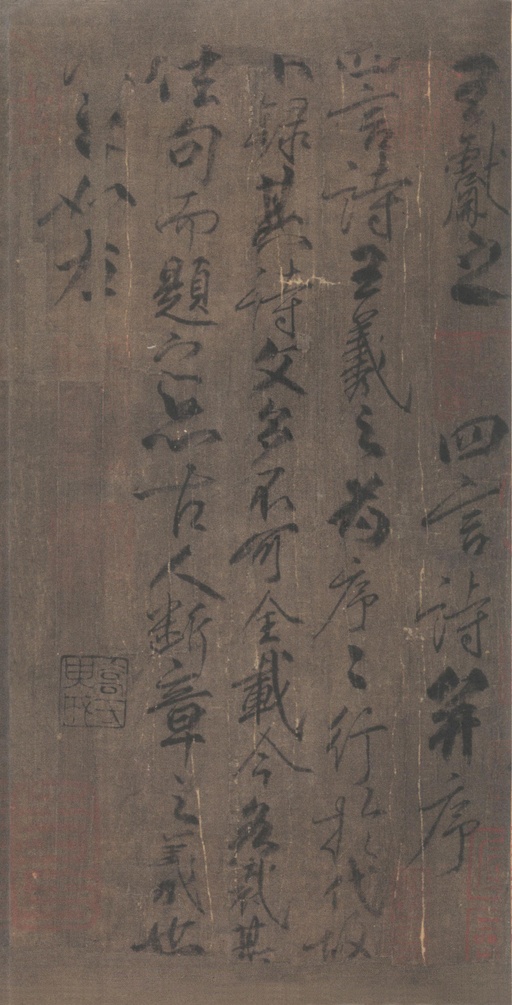 王獻之 四言詩并序
四言詩王羲之為序〻行於代故
不錄其詩文多不可全載今各裁其
佳句而題之亦古人斷章之義也
如左